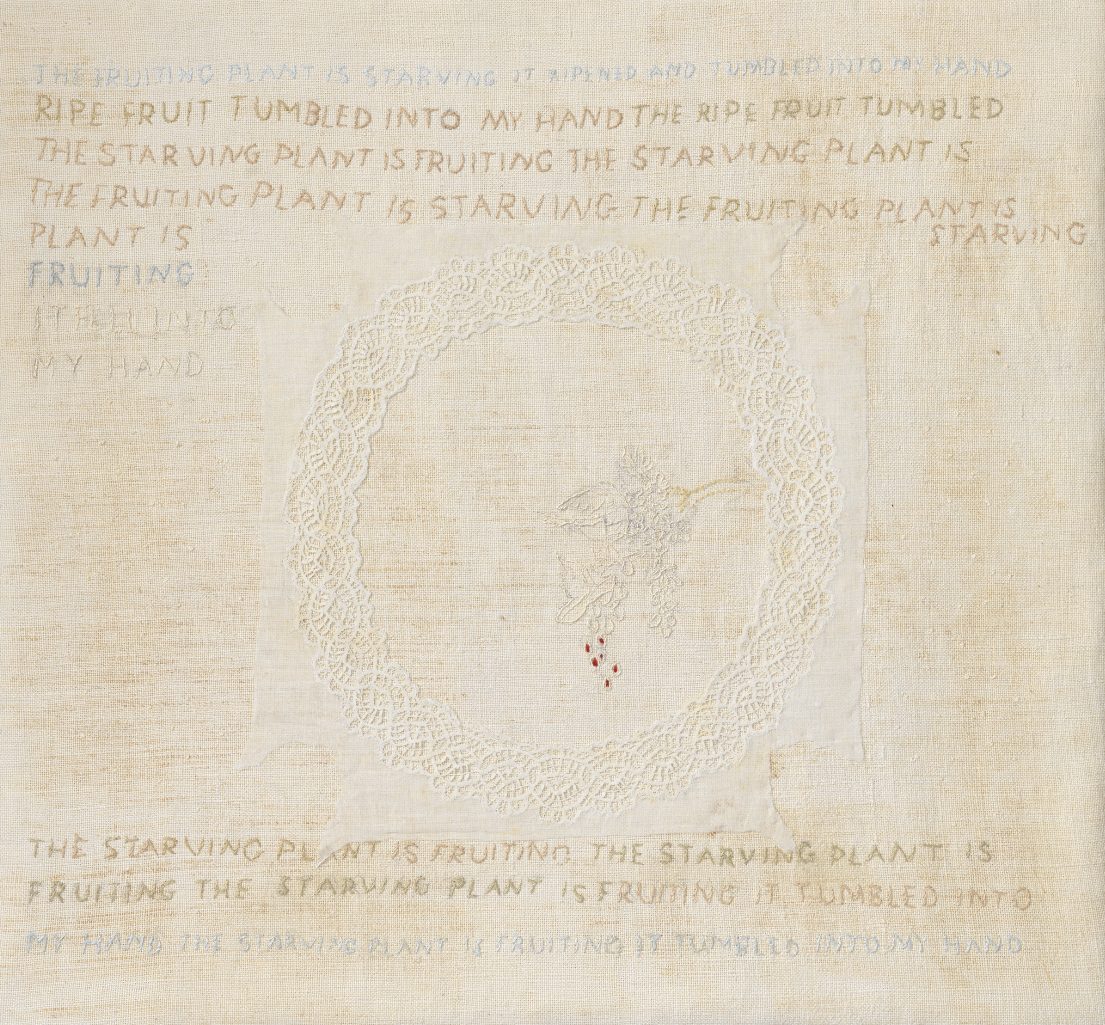 THE FRUITING PLANT IS STARVING IT RIPENED AND TUMBLED INTO MY HAND
RIPE FRUIT TUMBLED INTO MY HAND THE RIPE FRUIT TUMBLED
THE STARVING PLANT IS FRUITING THE STARVING PLANT IS
THE FRUITING PLANT IS STARVING THE FRUITING PLANT IS
STARVING
PLANT IS
FRUITING
INTO
MY HAND
THE STARVING PLANT IS FRUITING THE STARVING PLANT IS
FRUITING THE STARVING PLANT IS FRUITING IT TUMBLED INTO
MY HAND THE STARVING PLANT IS FRUITING IT TUMBLED INTO MY HAND